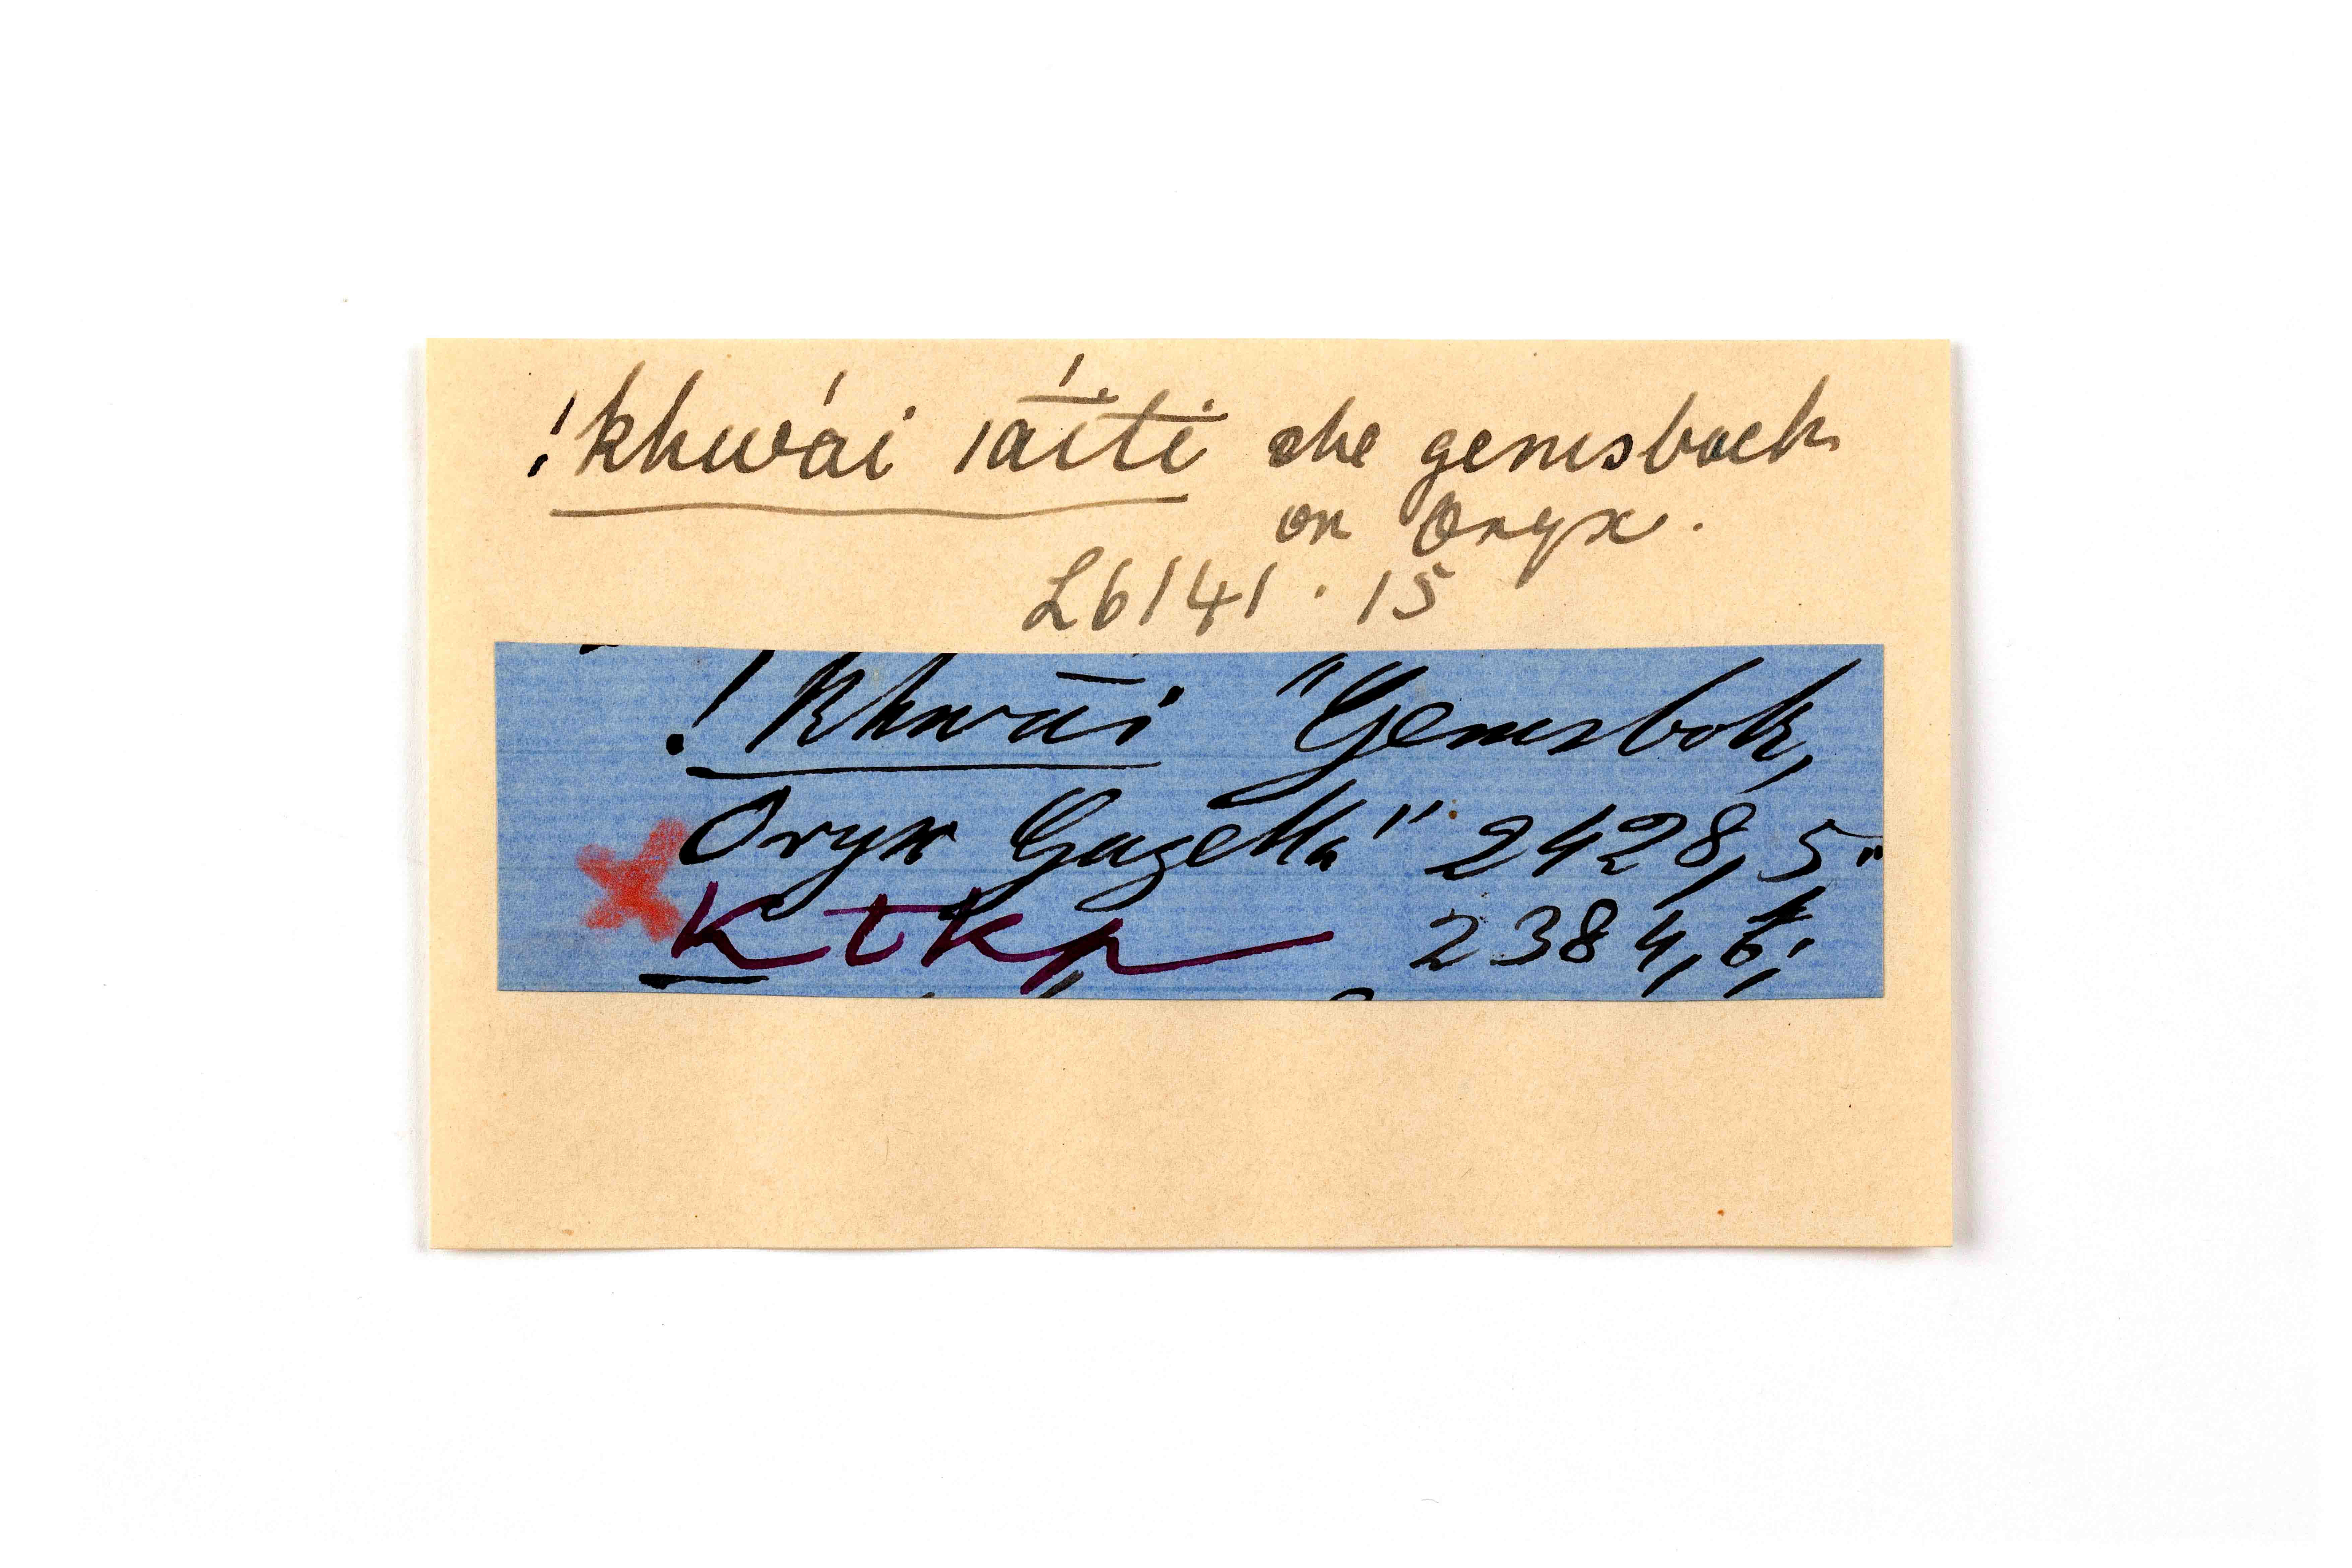 !khwái |ā́ītĭ she gemsbock
or Oryx.
L6141.15
!Khwāi "Gemsbok,
Oryx Gazella" 2428, 5.
K tkp 2384, 6,